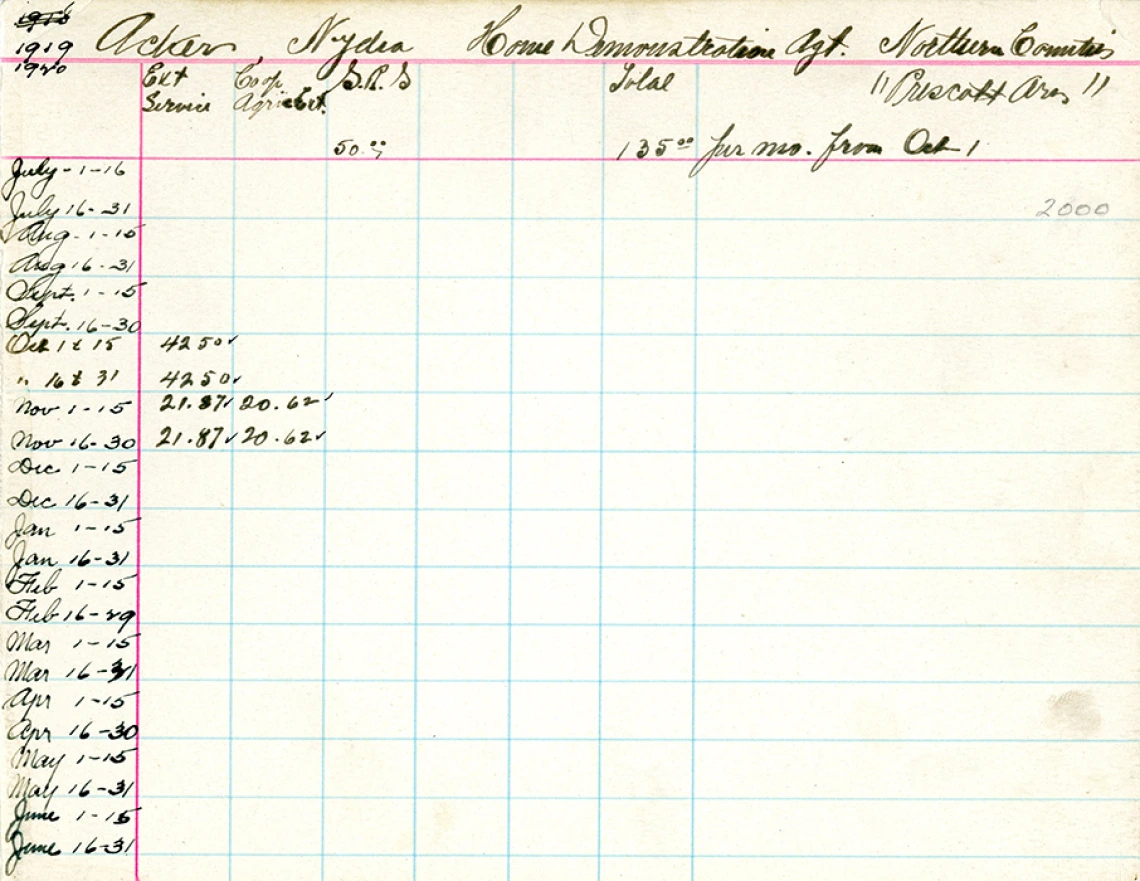 1918
1919 Acker, Nydia Home Demonstration Agt. Northern Counties
1920
Ext Coop S.R.S Total "Prescott Ariz"
Service Agric Ext.
50.00 135.00 per mo. from Oct 1
July - 1-16
July 16-31 2000
Aug - 1-15
Aug 16-31
Sept. 1-15
Sept. 16-30
Oct 1 t 15 42 50✓
" 16 t 31 42 50✓
Nov 1-15 21.87✓ 20.62✓
Nov 16-30 21.87✓ 20.62✓
Dec 1-15
Dec 16-31
Jan 1-15
Jan 16-31
Feb 1-15
Feb 16-29
Mar 1-15
Mar 16-31
Apr 1-15
Apr 16-30
May 1-15
May 16-31
June 1-15
June 16-31